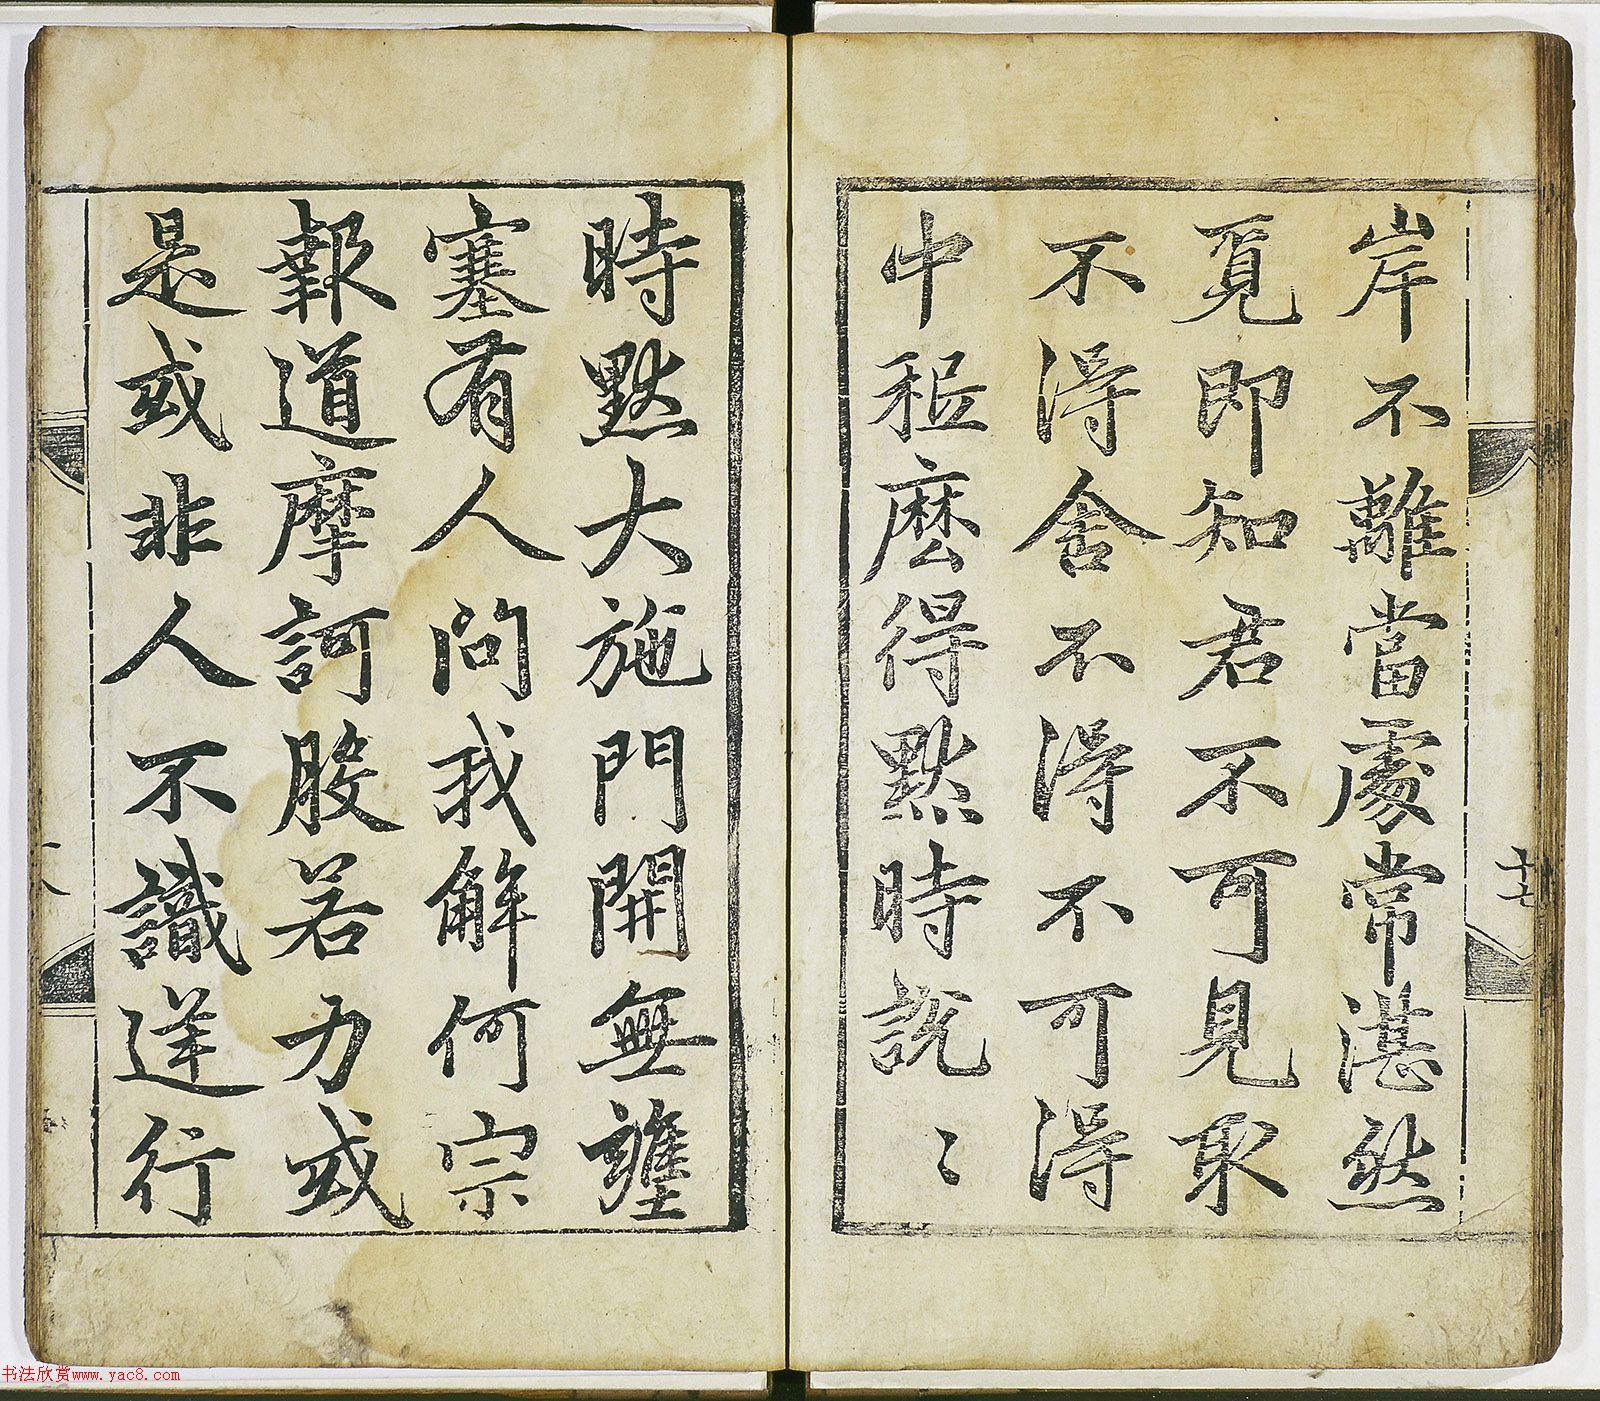 岸不離當處常湛然
覓即知君不可見取
不得舍不得不可得
中秖麼得默時說〻
十七
時默大施門開無壅
塞有人問我解何宗
報道摩訶般若力或
是或非人不識逆行
书法欣赏www.yac8.com